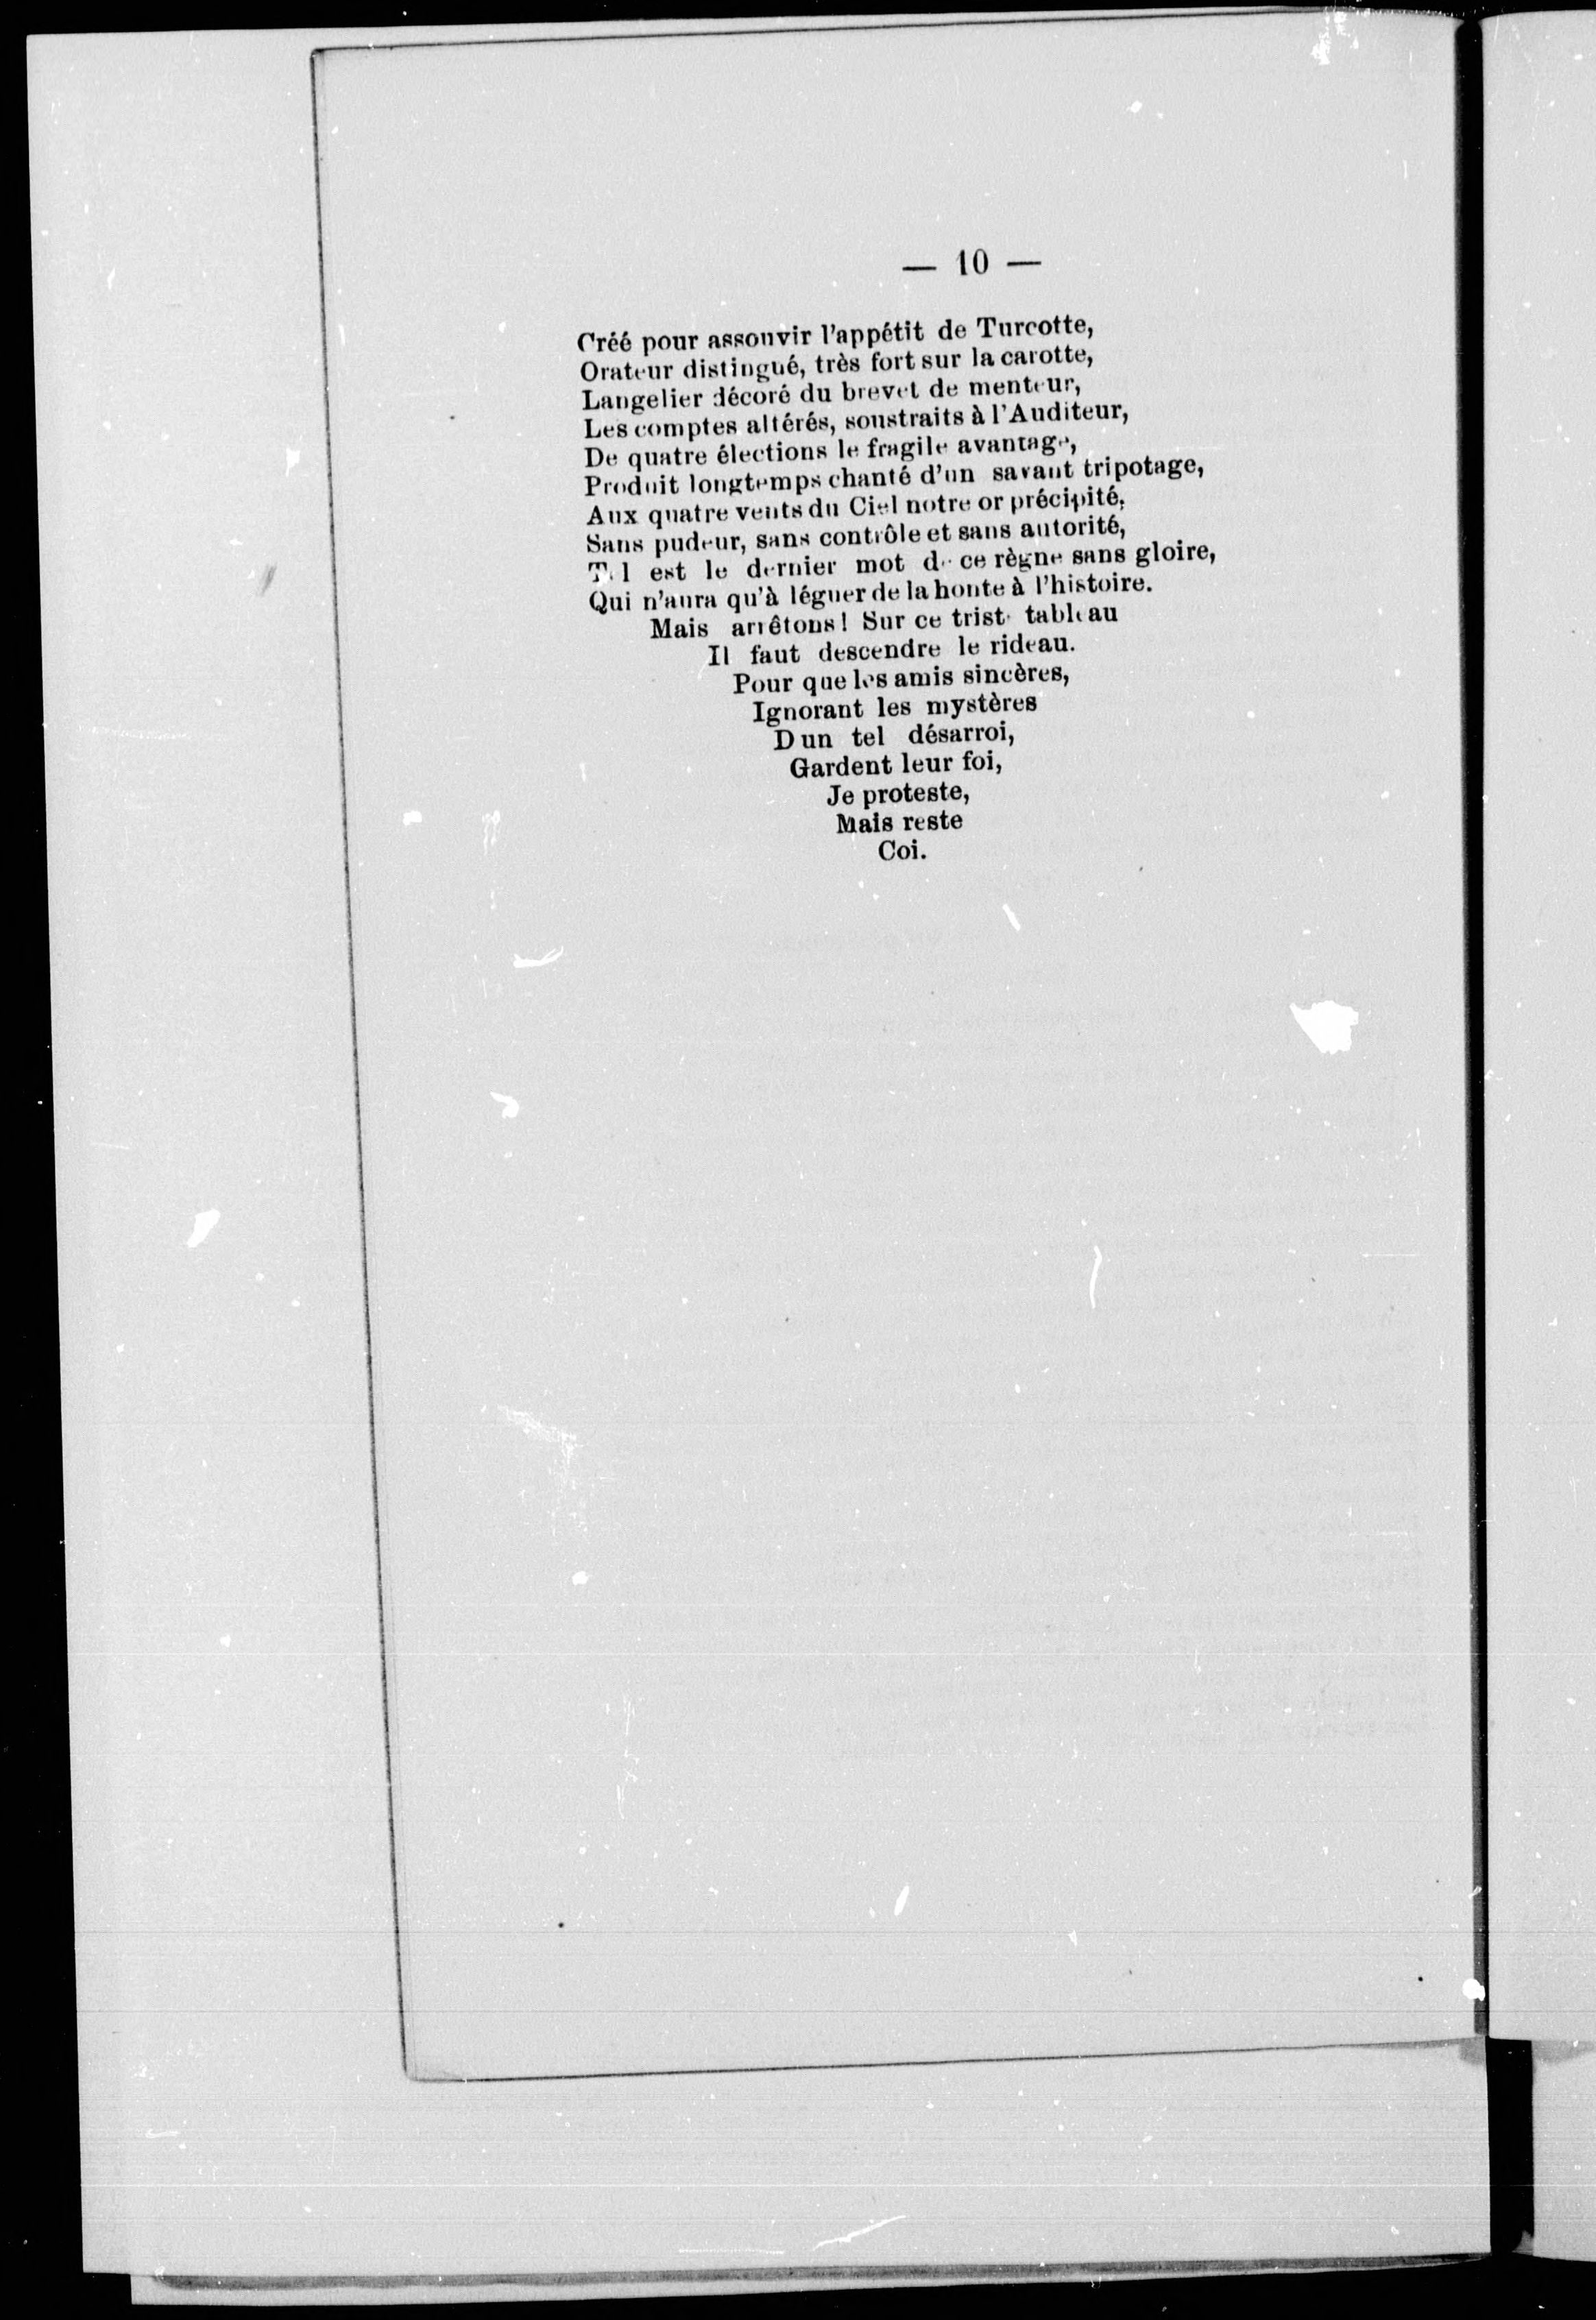 — 10 —
Créé pour assouvir l'appétit de Turcotte,
Orateur distingué, très fort sur la carotte,
Langelier décoré du brevet de menteur,
Les comptes altérés, soustraits à l'Auditeur,
De quatre élections le fragile avantage,
Produit longtemps chanté d'un savant tripotage,
Aux quatre vents du Ciel notre or précipité,
Sans pudeur, sans contrôle et sans autorité,
Tel est le dernier mot de ce règne sans gloire,
Qui n'aura qu'à léguer de la honte à l'histoire.
Mais arrêtons! Sur ce triste tableau
Il faut descendre le rideau.
Pour que les amis sincères,
Ignorant les mystères
D un tel désarroi,
Gardent leur foi,
Je proteste,
Mais reste
Coi.